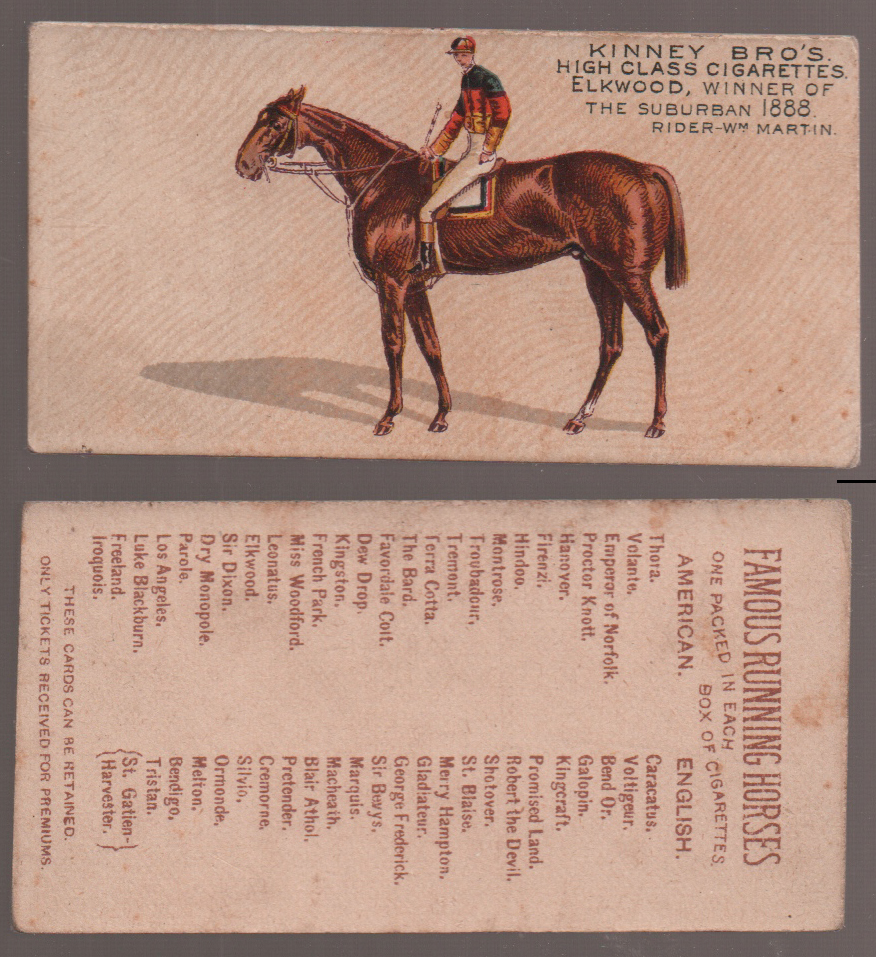 KINNEY BRO'S.
HIGH CLASS CIGARETTES.
ELKWOOD, WINNER OF
THE SUBURBAN 1888.
RIDER-WM MARTIN.
FAMOUS RUNNING HORSES
ONE PACKED IN EACH
BOX OF CIGARETTES.
AMERICAN. ENGLISH.
Thora. Caracatus.
Volante. Voltigeur.
Emperor of Norfolk. Bend Or.
Proctor Knott. Galopin.
Hanover. Kingcraft.
Firenzi. Promised Land.
Hindoo. Robert the Devil.
Montrose. Shotover.
Troubadour. St. Blaise.
Tremont. Merry Hampton.
Terra Cotta. Gladiateur.
The Bard. George Frederick.
Favordale Colt. Sir Bevys.
Dew Drop. Marquis.
Kingston. Macheath.
French Park. Blair Athol.
Miss Woodford. Pretender.
Leonatus. Cremorne.
Elkwood. Silvio.
Sir Dixon. Ormonde.
Dry Monopole. Melton.
Parole. Bendigo.
Los Angeles. Tristan.
Luke Blackburn. {St. Gatien-}
Freeland. {Harvester.}
Iroquois.
THESE CARDS CAN BE RETAINED.
ONLY TICKETS RECEIVED FOR PREMIUMS.